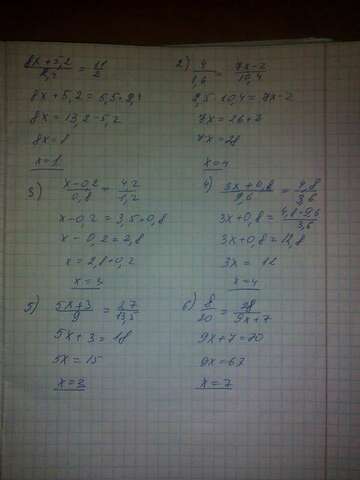 (8x+5,2)/2,4 = 11/2
8x+5,2=5,5·2,4
8x=13,2-5,2
8x=8
x=1
2) 4/1,6 = (7x-2)/10,4
2,5·10,4=7x-2
7x=26+2
7x=28
x=4
3) (x-0,2)/0,8 = 4,2/1,2
x-0,2=3,5·0,8
x-0,2=2,8
x=2,8+0,2
x=3
4) (3x+0,8)/9,6 = 4,8/3,6
3x+0,8=(4,8·9,6)/3,6
3x+0,8=12,8
3x=12
x=4
5) (5x+3)/9 = 27/13,5
5x+3=18
5x=15
x=3
6) 8/20 = 28/(9x+7)
9x+7=70
9x=63
x=7